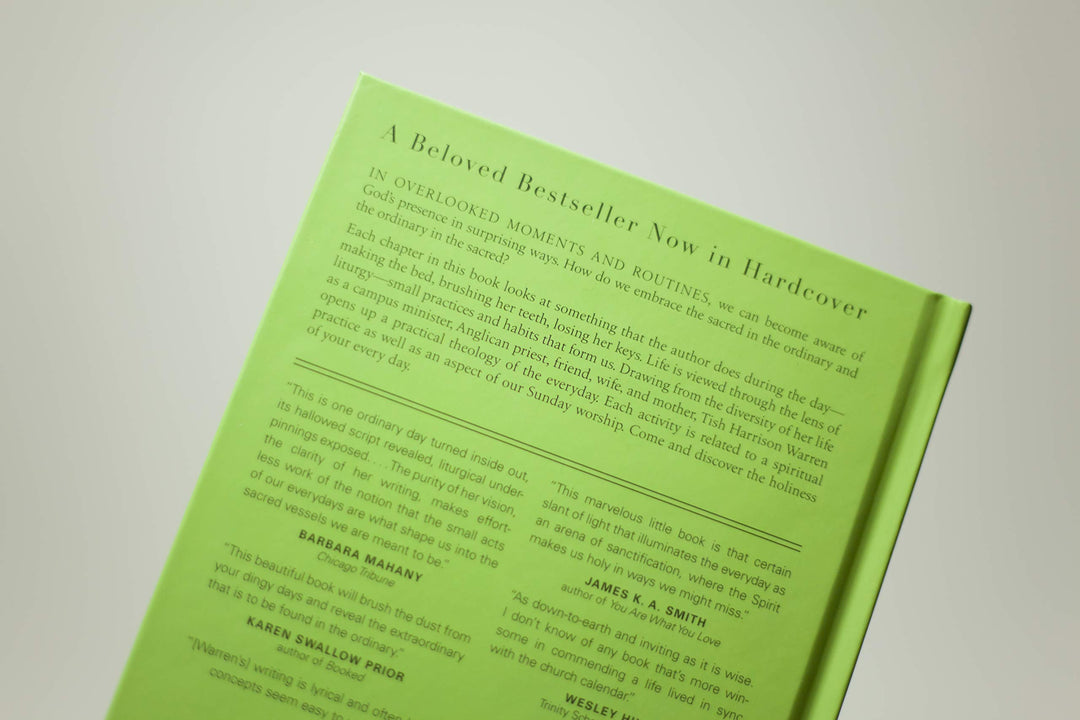 A Beloved Bestseller Now in Hardcover
IN OVERLOOKED MOMENTS AND ROUTINES, we can become aware of
God's presence in surprising ways. How do we embrace the sacred in the ordinary and
the ordinary in the sacred?
Each chapter in this book looks at something that the author does during the day—
making the bed, brushing her teeth, losing her keys. Life is viewed through the lens of
liturgy—small practices and habits that form us. Drawing from the diversity of her life
as a campus minister, Anglican priest, friend, wife, and mother, Tish Harrison Warren
opens up a practical theology of the everyday. Each activity is related to a spiritual
practice as well as an aspect of our Sunday worship. Come and discover the holiness
of your every day.
"This is one ordinary day turned inside out,
its hallowed script revealed, liturgical under-
pinnings exposed. . . . The purity of her vision,
the clarity of her writing, makes effort-
less work of the notion that the small acts
of our everydays are what shape us into the
sacred vessels we are meant to be."
BARBARA MAHANY
Chicago Tribune
"This beautiful book will brush the dust from
your dingy days and reveal the extraordinary
that is to be found in the ordinary."
KAREN SWALLOW PRIOR
author of Booked
"[Warren's] writing is lyrical and often
concepts seem easy to
"This marvelous little book is that certain
slant of light that illuminates the everyday as
an arena of sanctification, where the Spirit
makes us holy in ways we might miss."
JAMES K. A. SMITH
author of You Are What You Love
"As down-to-earth and inviting as it is wise.
I don't know of any book that's more win-
some in commending a life lived in sync
with the church calendar."
WESLEY
Trinity